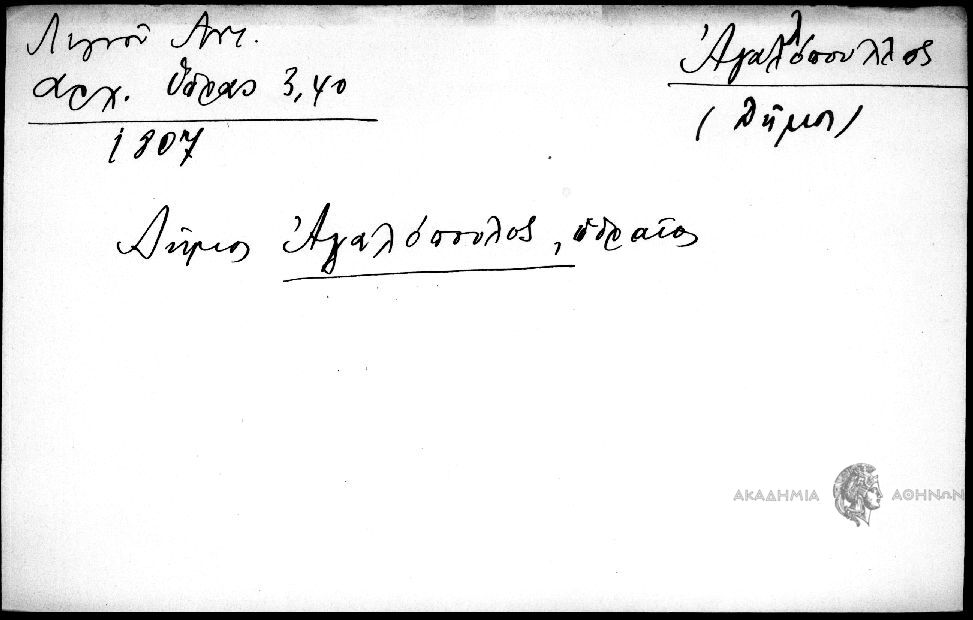 Λιγνοῦ Ἀντ.
ἀρχ. Ὕδρας 3,40
1807
Ἀγαλλόπουλλος
(Δῆμος)
Δῆμος Ἀγαλόπουλος, ὑδραῖος
ΑΚΑΔΗΜΙΑ ΑΘΗΝΩΝ